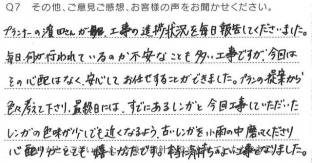 Q7 その他、ご意見ご感想、お客様の声をお聞かせください。
プランナーの濱田さんが毎日、工事の進捗状況を毎日報告してくださいました。
毎日、何が行われているのか不安なことも多い工事ですが、今回は
その心配はなく、安心してお任せすることができました。プランの提案から
色々考えて下さり、最終日には、すでにあるレンガと今回工事していただいた
レンガの色味が少しでも近くなるよう、古いレンガを小雨の中磨いてくださり
心配りがとても嬉しかったです。気持ちのよい工事になりました。